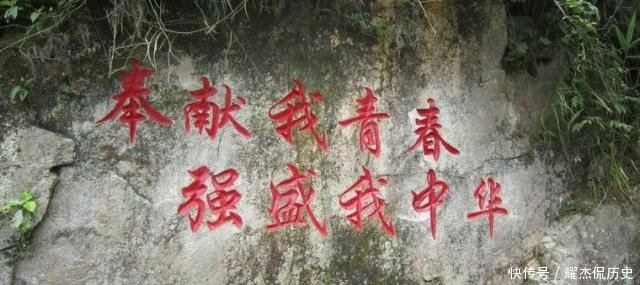 奉献我青春
强盛我中华
快传号／耀杰侃历史